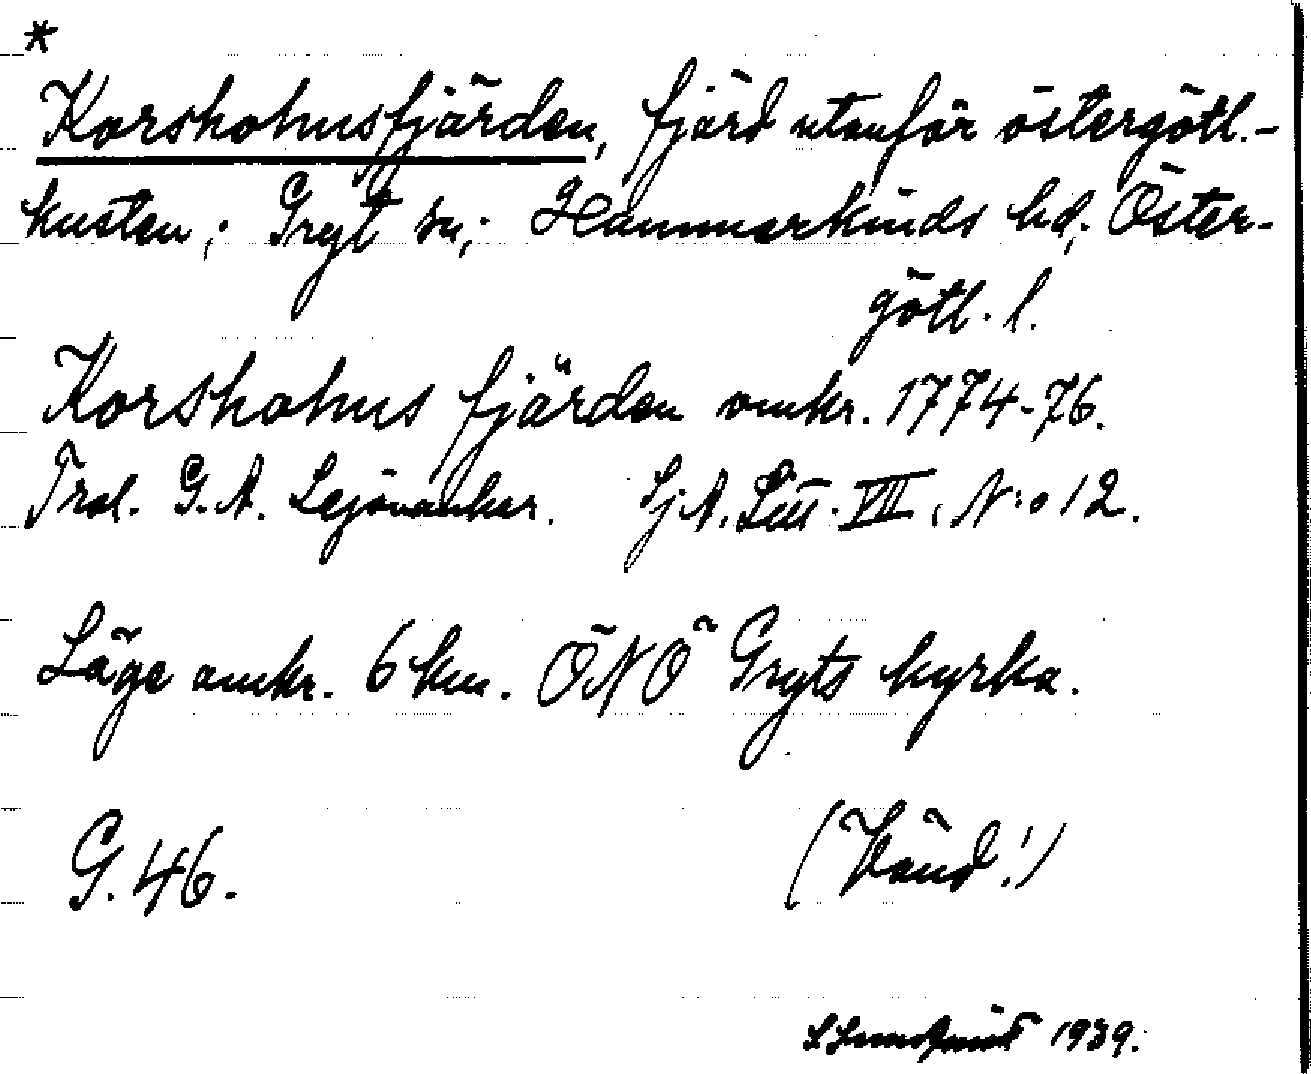 *
Korshohusfjärden, fjärd utanför östergötl.-
kusten; Gryt sn; Hammarkinds hd; Öster-
götl. l.
Korshohus fjärden omkr. 1774-76.
Trol. G. A. Lejonanker. Sj. A. Litt. VIII, N:o 12.
Läge omkr. 6 km. ÖNÖ Gryts kyrka.
G. 46.
(Vänd!)
1939.